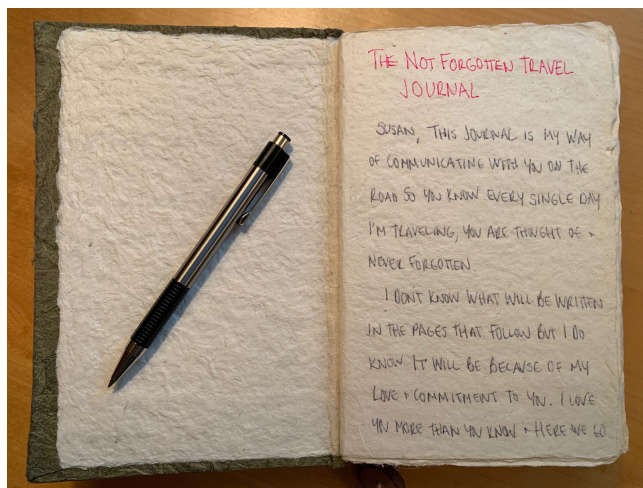 THE NOT FORGOTTEN TRAVEL
JOURNAL
SUSAN, THIS JOURNAL IS MY WAY
OF COMMUNICATING WITH YOU ON THE
ROAD SO YOU KNOW EVERY SINGLE DAY
I'M TRAVELING, YOU ARE THOUGHT OF +
NEVER FORGOTTEN.
I DONT KNOW WHAT WILL BE WRITTEN
IN THE PAGES THAT FOLLOW BUT I DO
KNOW IT WILL BE BECAUSE OF MY
LOVE + COMMITMENT TO YOU. I LOVE
YOU MORE THAN YOU KNOW + HERE WE GO